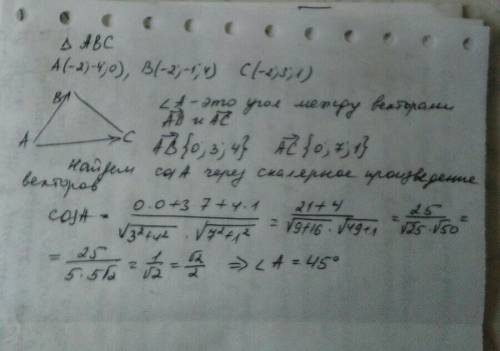 Δ ABC
A(-2;-4;0), B(-2;-1;4) C(-2;3;1)
B
A
C
∠A - это угол между векторами
AB и AC
AB {0; 3; 4} AC {0; 7; 1}
Найдем cosA через скалярное произведение
векторов
cosA = (0·0+3·7+4·1)/(√(3²+4²)·√(7²+1²)) = (21+4)/(√(9+16)·√(49+1)) = 25/(√25·√50) =
= 25/(5·5√2) = 1/√2 = √2/2 ⇒ ∠A = 45°